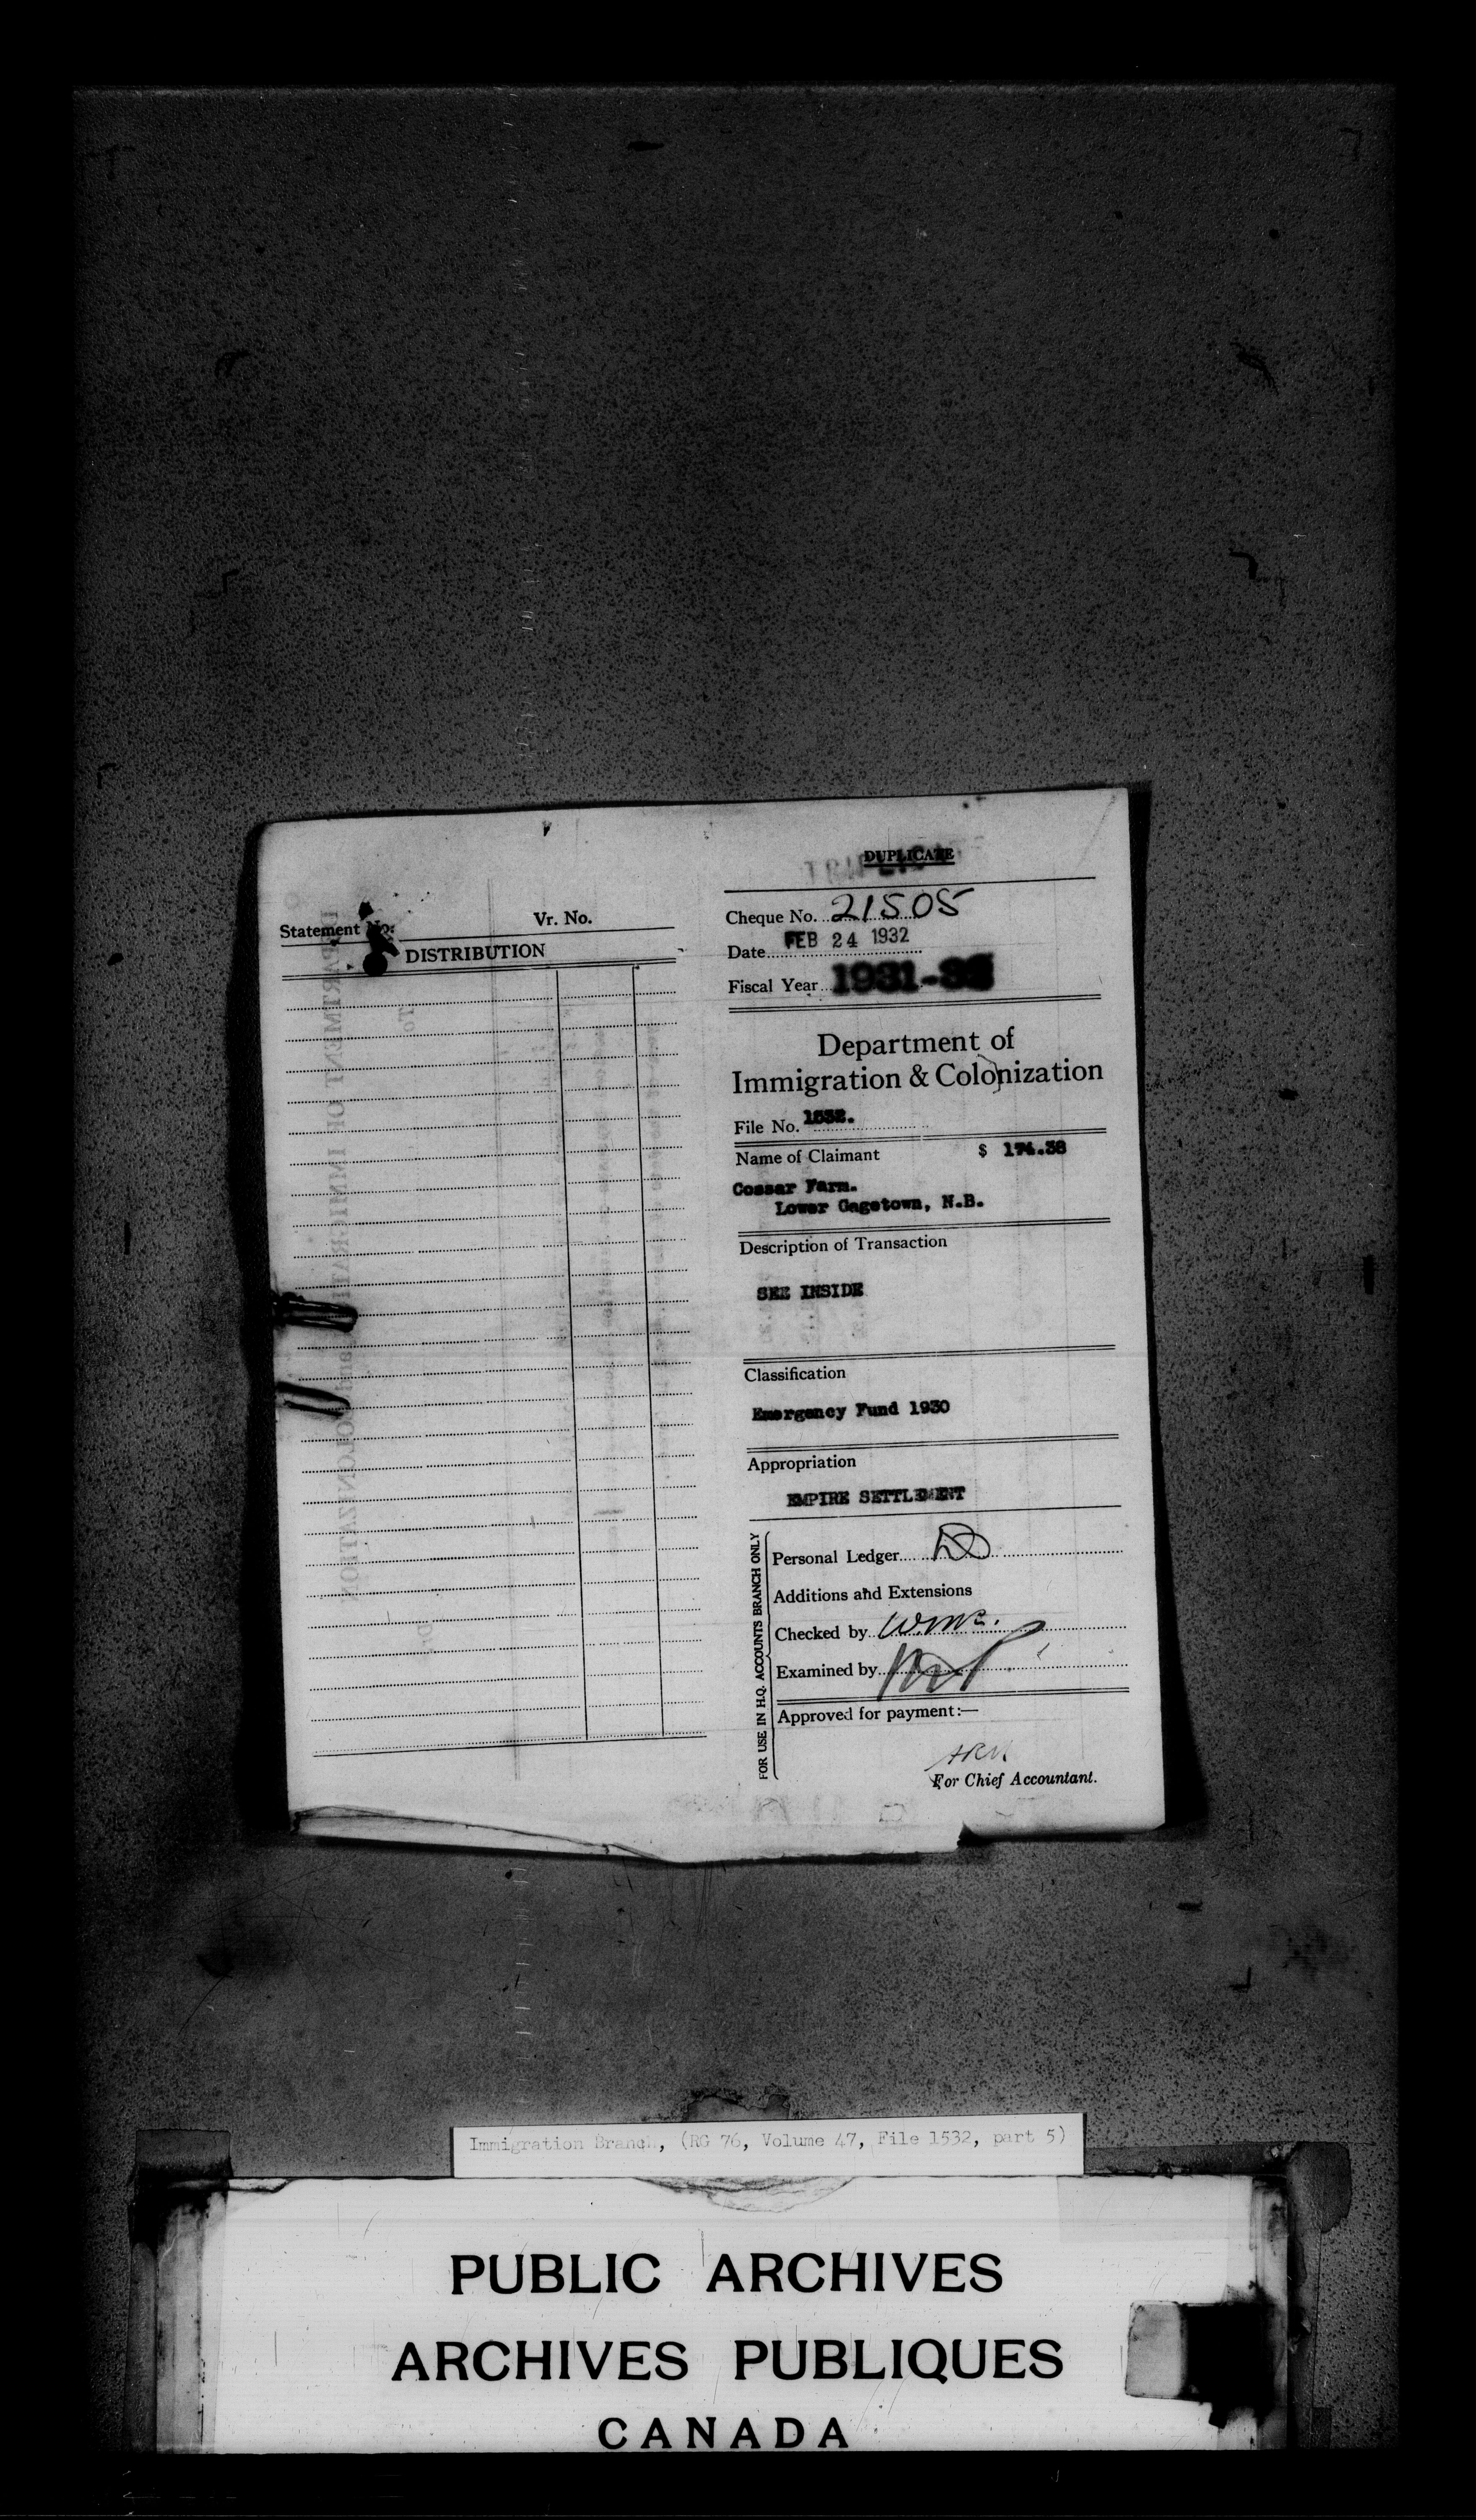 Statement No. Vr. No.
DISTRIBUTION
DUPLICATE
Cheque No. 21505
Date FEB 24 1932
Fiscal Year 1931-32
Department of
Immigration & Colonization
File No. 1532.
Name of Claimant $ 174.38
Cossar Farm.
Lower Gagetown, N.B.
Description of Transaction
SEE INSIDE
Classification
Emergency Fund 1930
Appropriation
EMPIRE SETTLEMENT
FOR USE IN H.Q. ACCOUNTS BRANCH ONLY
Personal Ledger
Additions and Extensions
Checked by
Examined by
Approved for payment:—
For Chief Accountant.
Immigration Branch, (RG 76, Volume 47, File 1532, part 5)
PUBLIC ARCHIVES
ARCHIVES PUBLIQUES
CANADA